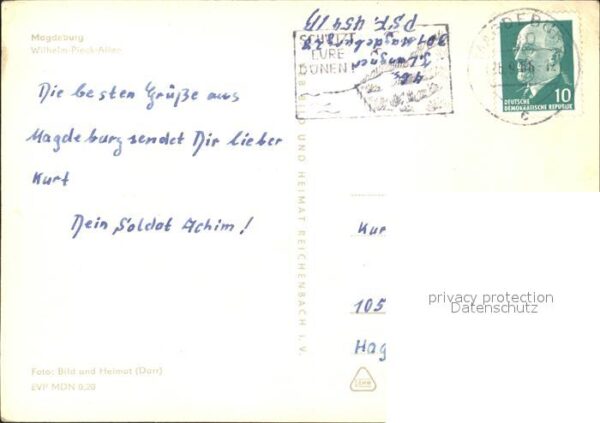 Magdeburg
Wilhelm-Pieck-Allee
Die besten Grüße aus
Magdeburg sendet Dir lieber
Kurt
Dein Soldat Achim!
Foto: Bild und Heimat (Darr)
EVP MDN 0,20
BILD UND HEIMAT REICHENBACH I. V.
SCHÜTZT
EURE
DÜNEN!
301 Magdeburg
MAGDEBURG
10
DEUTSCHE
DEMOKRATISCHE REPUBLIK
c
Kur
105
Hag
privacy protection
Datenschutz